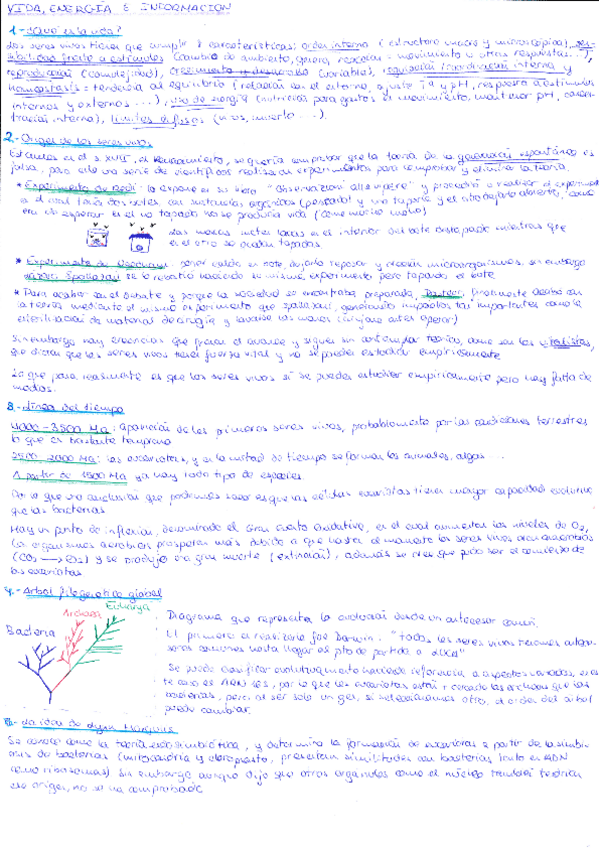 VIDA, ENERGÍA E INFORMACIÓN
1.- ¿Qué es la vida?
Los seres vivos tienen que cumplir 8 características: orden interno (estructura macro y microscópica), sen-
sibilidad frente a estímulos (cambio de ambiente, genera reacción: movimiento u otras respuestas...),
reproducción (complejidad), crecimiento y desarrollo (variables), regulación/coordinación interna y
homeostasis: tendencia al equilibrio (relación con el externo, ajuste Tª y pH, respuesta a estímulos
internos y externos ...), uso de energía (nutrición para gastos en movimiento, mantener pH, concen-
tración interna), límites difusos (virus, muerto ...).
2.- Origen de los seres vivos
Estamos en el s. XVII, el Renacimiento, se quería comprobar que la teoría de la generación espontánea es
falsa, para ello una serie de científicos realizan experimentos para comprobar y eliminar la teoría.
* Experimento de Redi: lo expone en su libro "Observazioni all vipere" y procedió a realizar el experimento
en el cual tenía dos botes con sustancias orgánicas (pescado) y uno taparlo y el otro dejarlo abierto, como
era de esperar en el no tapado no se producía vida (como mucho moho)
Las moscas meten larvas en el interior del bote destapado mientras que
en el otro se quedan tapadas.
* Experimento de Needham: poner caldo en bote, dejarlo reposar y nacerán microorganismos, sin embargo
Lázaro Spallazani se lo rebatió haciendo el mismo experimento pero tapando el bote
* Para acabar con el debate y porque la sociedad se encontraba preparada, Pasteur finalmente acaba con
la teoría mediante el mismo experimento que Spallazani, generando impactos tan importantes como la
esterilización de material de cirugía y lavarse las manos (cirujano antes operar)
Sin embargo hay creencias que frenan el avance y siguen sin anticipar teorías, como son los vitalistas,
que dicen que los seres vivos tienen fuerza vital y no se pueden estudiar empíricamente
Lo que pasa realmente es que los seres vivos sí se pueden estudiar empíricamente pero hay falta de
medios.
3.- Línea del tiempo
4000 - 3500 Ma: aparición de los primeros seres vivos, probablemente por las condiciones terrestres
lo que es bastante temprano
2500 - 2000 Ma: los eucariotas, y a la mitad de tiempo se forman los animales, algas...
A partir de 1500 Ma ya hay todo tipo de especies.
Por lo que una conclusión que podemos sacar es que las células eucariotas tienen mayor capacidad evolutiva
que las bacterias
Hay un punto de inflexión, denominado el Gran Evento Oxidativo, en el cual aumentan los niveles de O₂,
los organismos aerobios prosperan más debido a que hasta el momento los seres vivos eran anaerobios
(CO₂ → O₂) y se produjo una gran muerte (extinción), además se cree que pudo ser el comienzo de
los eucariotas
4.- Árbol filogenético global
Bacteria
Archaea
Eukarya
Diagrama que representa la evolución desde un antecesor común.
El primero en realizarlo fue Darwin: "todos los seres vivos tenemos antece-
sores comunes hasta llegar al pto de partida o LUCA"
Se puede clasificar evolutivamente haciendo referencia a aspectos variados, en es
te caso es ADN 16S, por lo que los eucariotas están + cerca de las archaeas que las
bacterias, pero al ser solo un gen, si seleccionamos otro, el orden del árbol
puede cambiar.
- La idea de Lynn Margulis
Se conoce como la teoría endosimbiótica, y determina la formación de eucariotas a partir de la simbio-
sis de bacterias (mitocondria y cloroplasto, presentan similitudes con bacterias tanto en ADN
como ribosomas) Sin embargo aunque dijo que otros orgánulos como el núcleo también tendrían
ese origen, no se ha comprobado